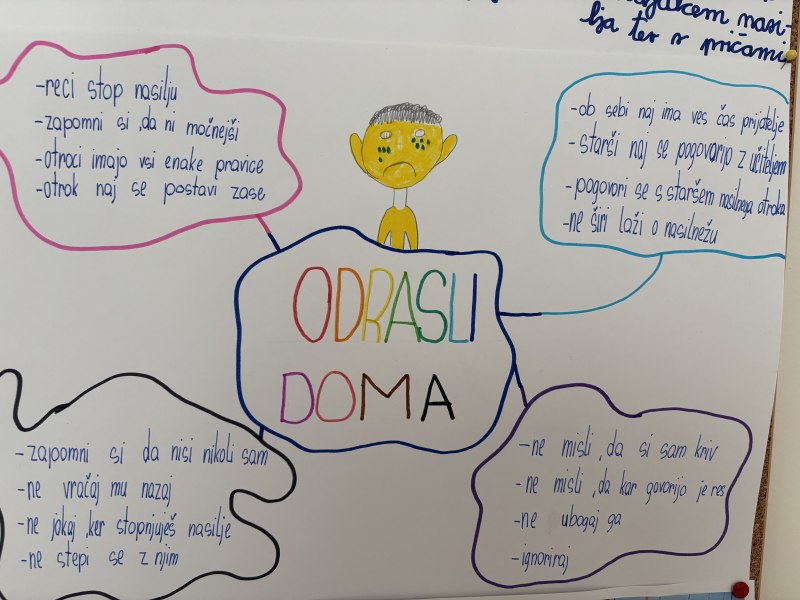 nasi-
lja ter s pričami
-reci stop nasilju
-zapomni si ,da ni močnejši
-otroci imajo vsi enake pravice
-otrok naj se postavi zase
-ob sebi naj ima ves čas prijatelje
-starši naj se pogovarijo z učiteljem
-pogovori se s staršem nasilnega otroka
-ne širi laži o nasilnežu
ODRASLI
DOMA
-zapomni si da nisi nikoli sam
-ne vračaj mu nazaj
-ne jokaj ,ker stopnjuješ nasilje
-ne stepi se z njim
-ne misli ,da si sam kriv
-ne misli ,da kar govorijo je res
-ne ubogaj ga
-ignoriraj